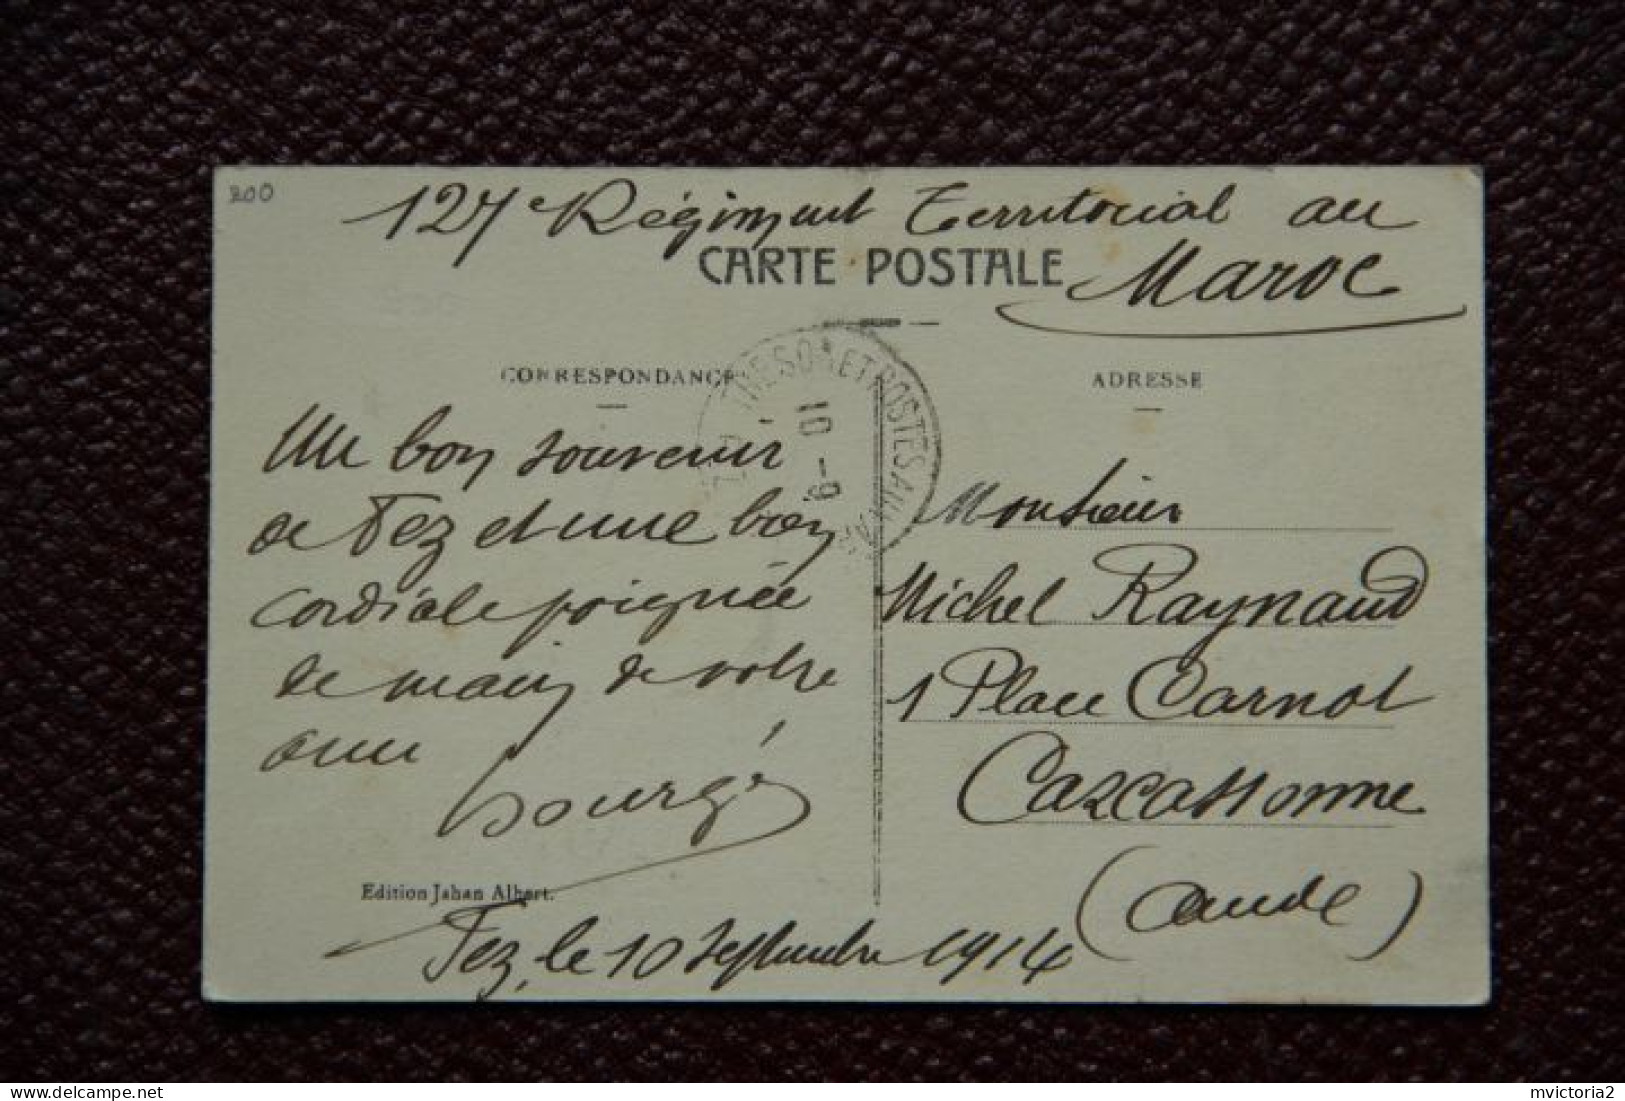 200
127e Régiment Territorial au
Maroc
CARTE POSTALE
CORRESPONDANCE
ADRESSE
TRESOR ET POSTES AUX
10 - 9
Un bon souvenir
de Fez et une bien
cordiale poignée
de main de votre
ami
Bourgé
Monsieur
Michel Raynaud
1 Place Carnot
Carcassonne
(Aude)
Edition Jahan Albert.
Fez, le 10 septembre 1914
mvictoria2